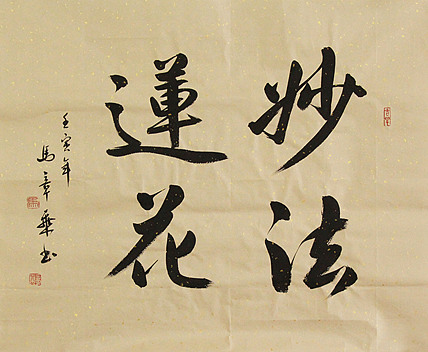 妙法
蓮花
壬寅年
馬章乘书